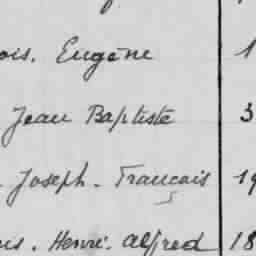 ois. Eugène 1
Jean Baptiste 3
. Joseph. Francais 19
us. Henri. Alfred 18